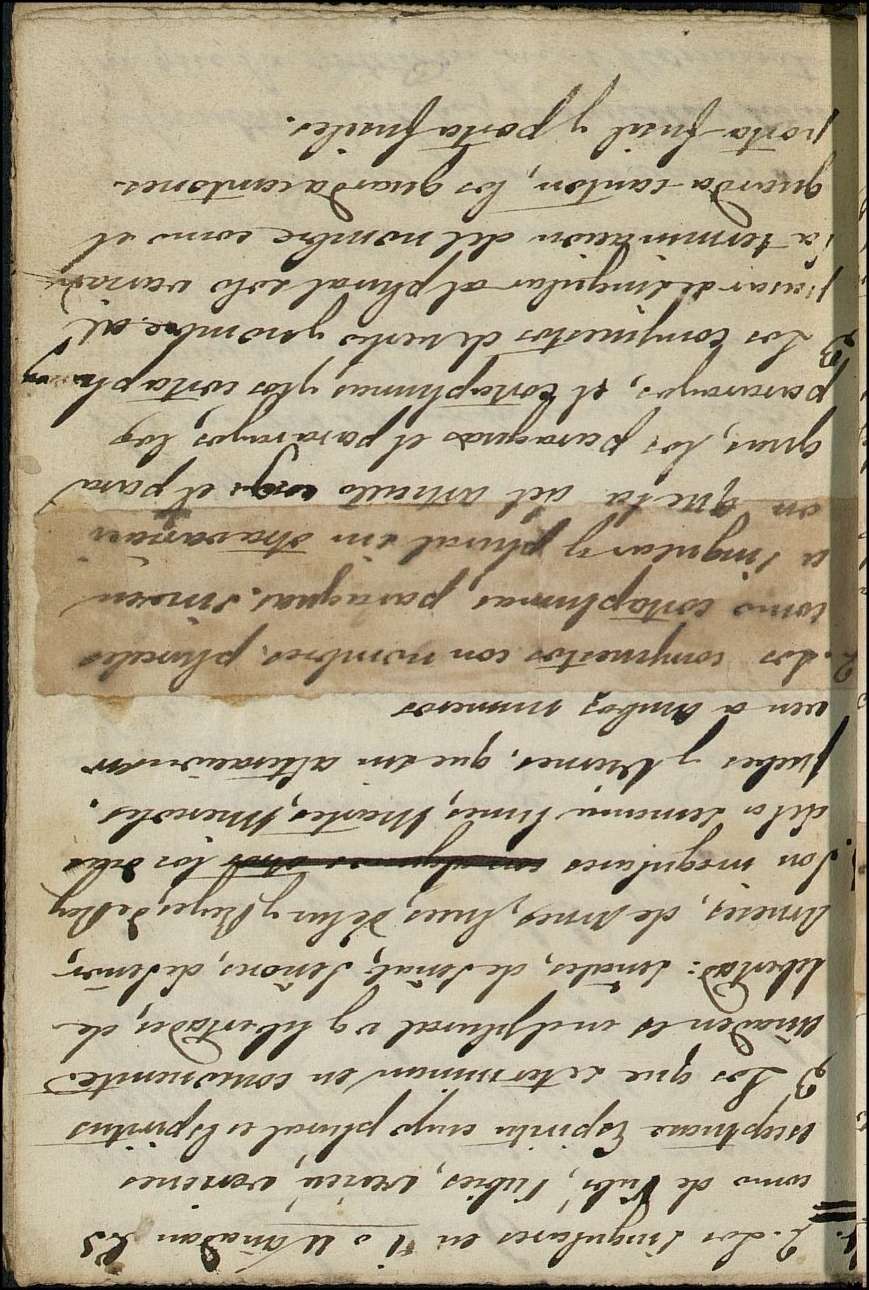 2. Los singulares en í o ú añadan es
como de Rubí, rubies, varones
eceptuase Espiritu cuyo plural es Espiritus
3 Los que se terminan en consonante
añaden es en el plural v g libertades, de
libertad: señales, de señal, Señores, de Señor,
Arneses, de Arnes, Luces de luz y Reyes de Rey
Son irregulares con algunos otros los dias
de la semana Lunes, Martes, Miercoles.
Jueves y Viernes, que sin alteracion sir
ven a ambos numeros
2. Los compuestos con nombres plurales
como cortaplumas, paraguas. Sirven
a singular y plural sin otra variaci
on que la del articulo el para
guas, los paraguas el pararayos, los
pararayos, el cortaplumas, y los cortaplu
3 Los compuestos de verbo y nombre al
pasar de singular al plural solo varian
la terminacion del nombre como el
guarda-canton, los guardacantones
porta-fusil y porta fusiles.